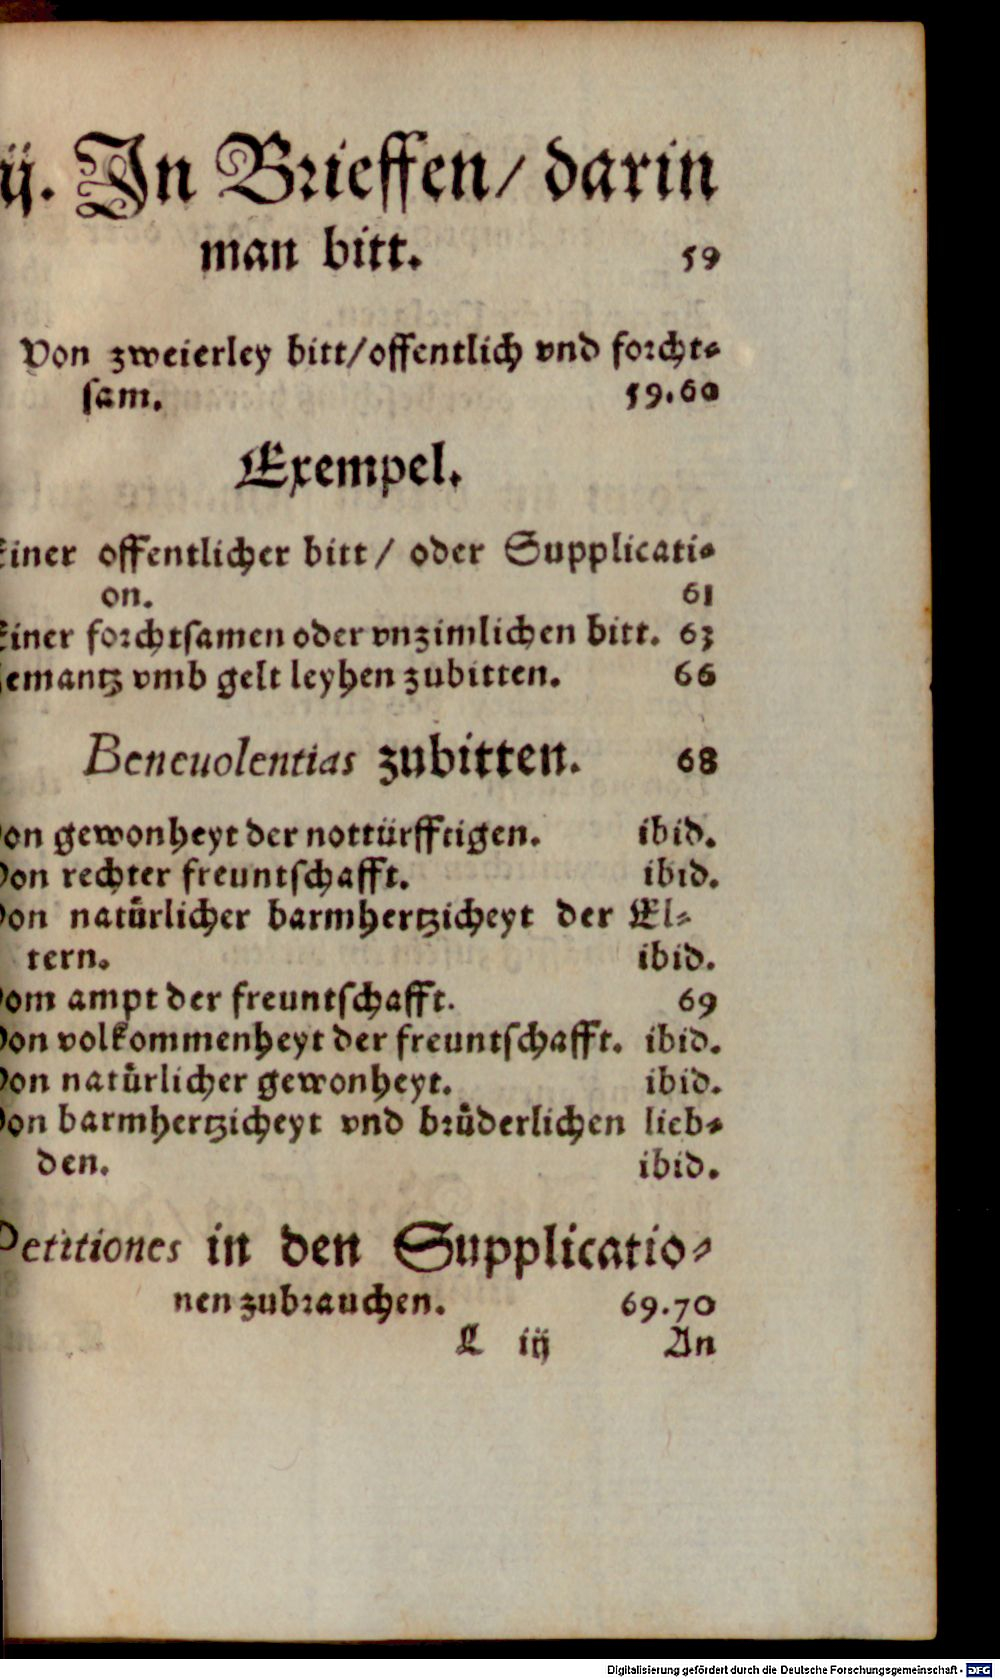 ij. In Brieffen/ darin
man bitt. 59
Von zweierley bitt/offentlich vnd forcht⸗
sam. 59.60
Exempel.
Einer offentlicher bitt/ oder Supplicati⸗
on. 61
Einer forchtsamen oder vnzimlichen bitt. 63
Jemantz vmb gelt leyhen zubitten. 66
Beneuolentias zubitten. 68
Von gewonheyt der nottürfftigen. ibid.
Von rechter freuntschafft. ibid.
Von natürlicher barmhertzicheyt der El⸗
tern. ibid.
Vom ampt der freuntschafft. 69
Von volkommenheyt der freuntschafft. ibid.
Von natürlicher gewonheyt. ibid.
Von barmhertzicheyt vnd brüderlichen lieb⸗
den. ibid.
Petitiones in den Supplicatio⸗
nen zubrauchen. 69.70
L iij An
Digitalisierung gefördert durch die Deutsche Forschungsgemeinschaft - DFG